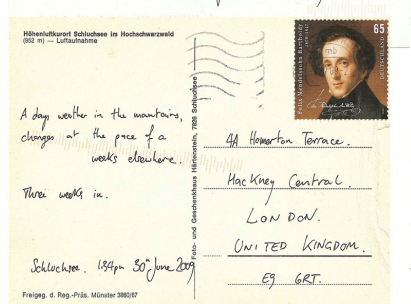 Höhenluftkurort Schluchsee im Hochschwarzwald
(952 m) — Luftaufnahme
A days weather in the mountains,
changes at the pace of a
weeks elsewhere.
Three weeks in.
Schluchsee. 1.34pm 30th June 2009
Freigeg. d. Reg.-Präs. Münster 3860/67
Foto- und Geschenkhaus Hartenstein, 7826 Schluchsee
65
DEUTSCHLAND
Felix Mendelssohn Bartholdy
4A Homerton Terrace.
Hackney Central.
LONDON.
UNITED KINGDOM.
E9 6RT.